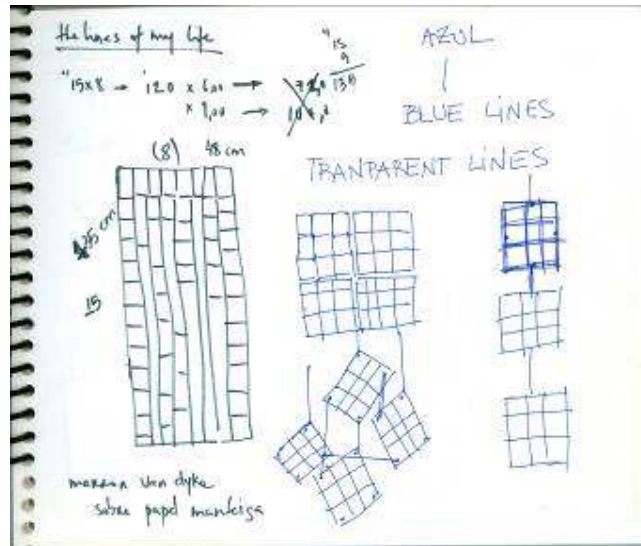 the lines of my life
"15x8 → 120 x 6,00 →
x 9,00 →
15
9
AZUL
BLUE LINES
TRANPARENT LINES
(8) 48 cm
cm
15
van dyke
sobre papel manteiga